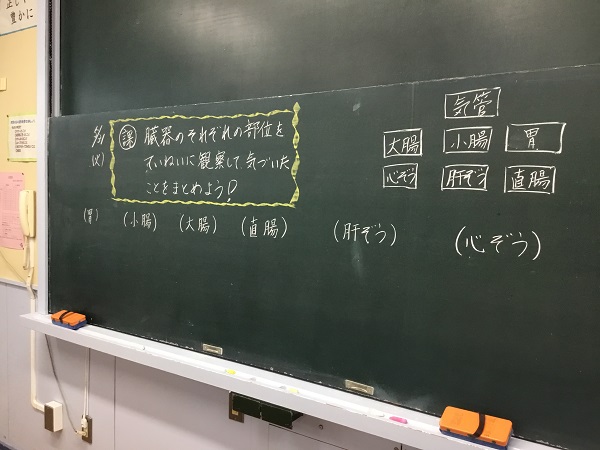 豊かに
(火)
課 臓器のそれぞれの部位を
ていねいに観察して、気づいた
ことをまとめよう!
気管
大腸 小腸 胃
心ぞう 肝ぞう 直腸
(胃) (小腸) (大腸) (直腸) (肝ぞう) (心ぞう)